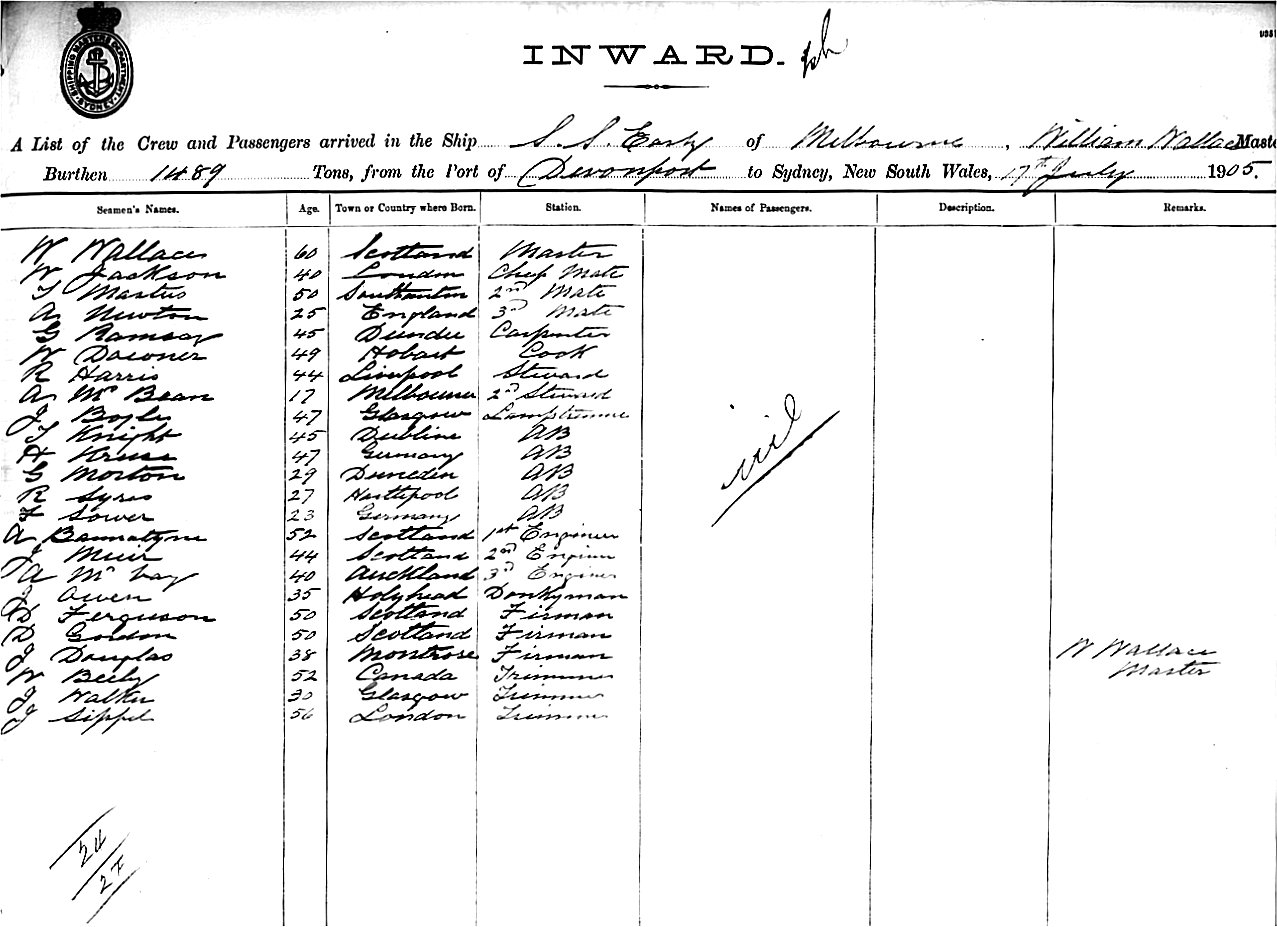 SHIPPING MASTER'S DEPARTMENT
SYDNEY
INWARD.
A List of the Crew and Passengers arrived in the Ship S. S. of Melbourne, William Wallace Maste
Burthen 1489 Tons, from the Port of Devonport to Sydney, New South Wales, 17th July 1905.
Seamen's Names. Age. Town or Country where Born. Station. Names of Passengers. Description. Remarks.
W Wallace 60 Scotland Master
W Jackson 40 London Chief Mate
T 50 Southampton 2nd Mate
A Newton 25 England 3rd Mate
G Ramsay 45 Dundee Carpenter
W 49 Hobart Cook
R Harris 44 Liverpool Steward
A Mc Bean 17 Melbourne 2nd Steward
J Boyle 47 Glasgow
T Knight 45 Dublin AB
H Kruse 47 Germany AB
G Morton 29 Dunedin AB
R Syres 27 Hartlepool AB
F Sower 23 Germany AB
A Bannatyne 52 Scotland 1st Engineer
J Muir 44 Scotland 2nd Engineer
A Mc Vay 40 Auckland 3rd Engineer
J Owen 35 Holyhead Donkyman
D Ferguson 50 Scotland Firman
D Gordon 50 Scotland Firman
J Douglas 38 Montrose Firman
W Beely 52 Canada Trimmer
J Walker 30 Glasgow Trimmer
J Sippel 56 London Trimmer
nil
W Wallace
Master
24